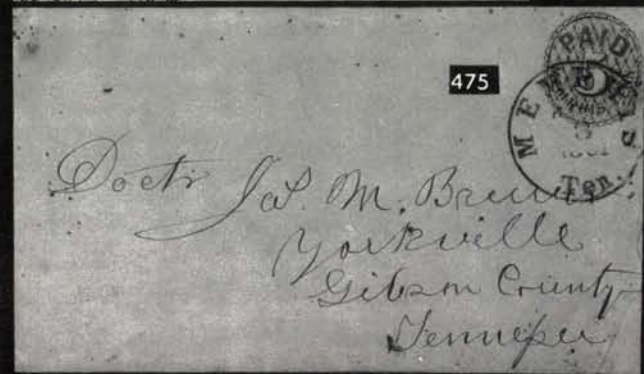 PAID
475
MEMPHIS
Ten.
Doctr Jas. M.
Yorkville
Gibson County
Tennessee